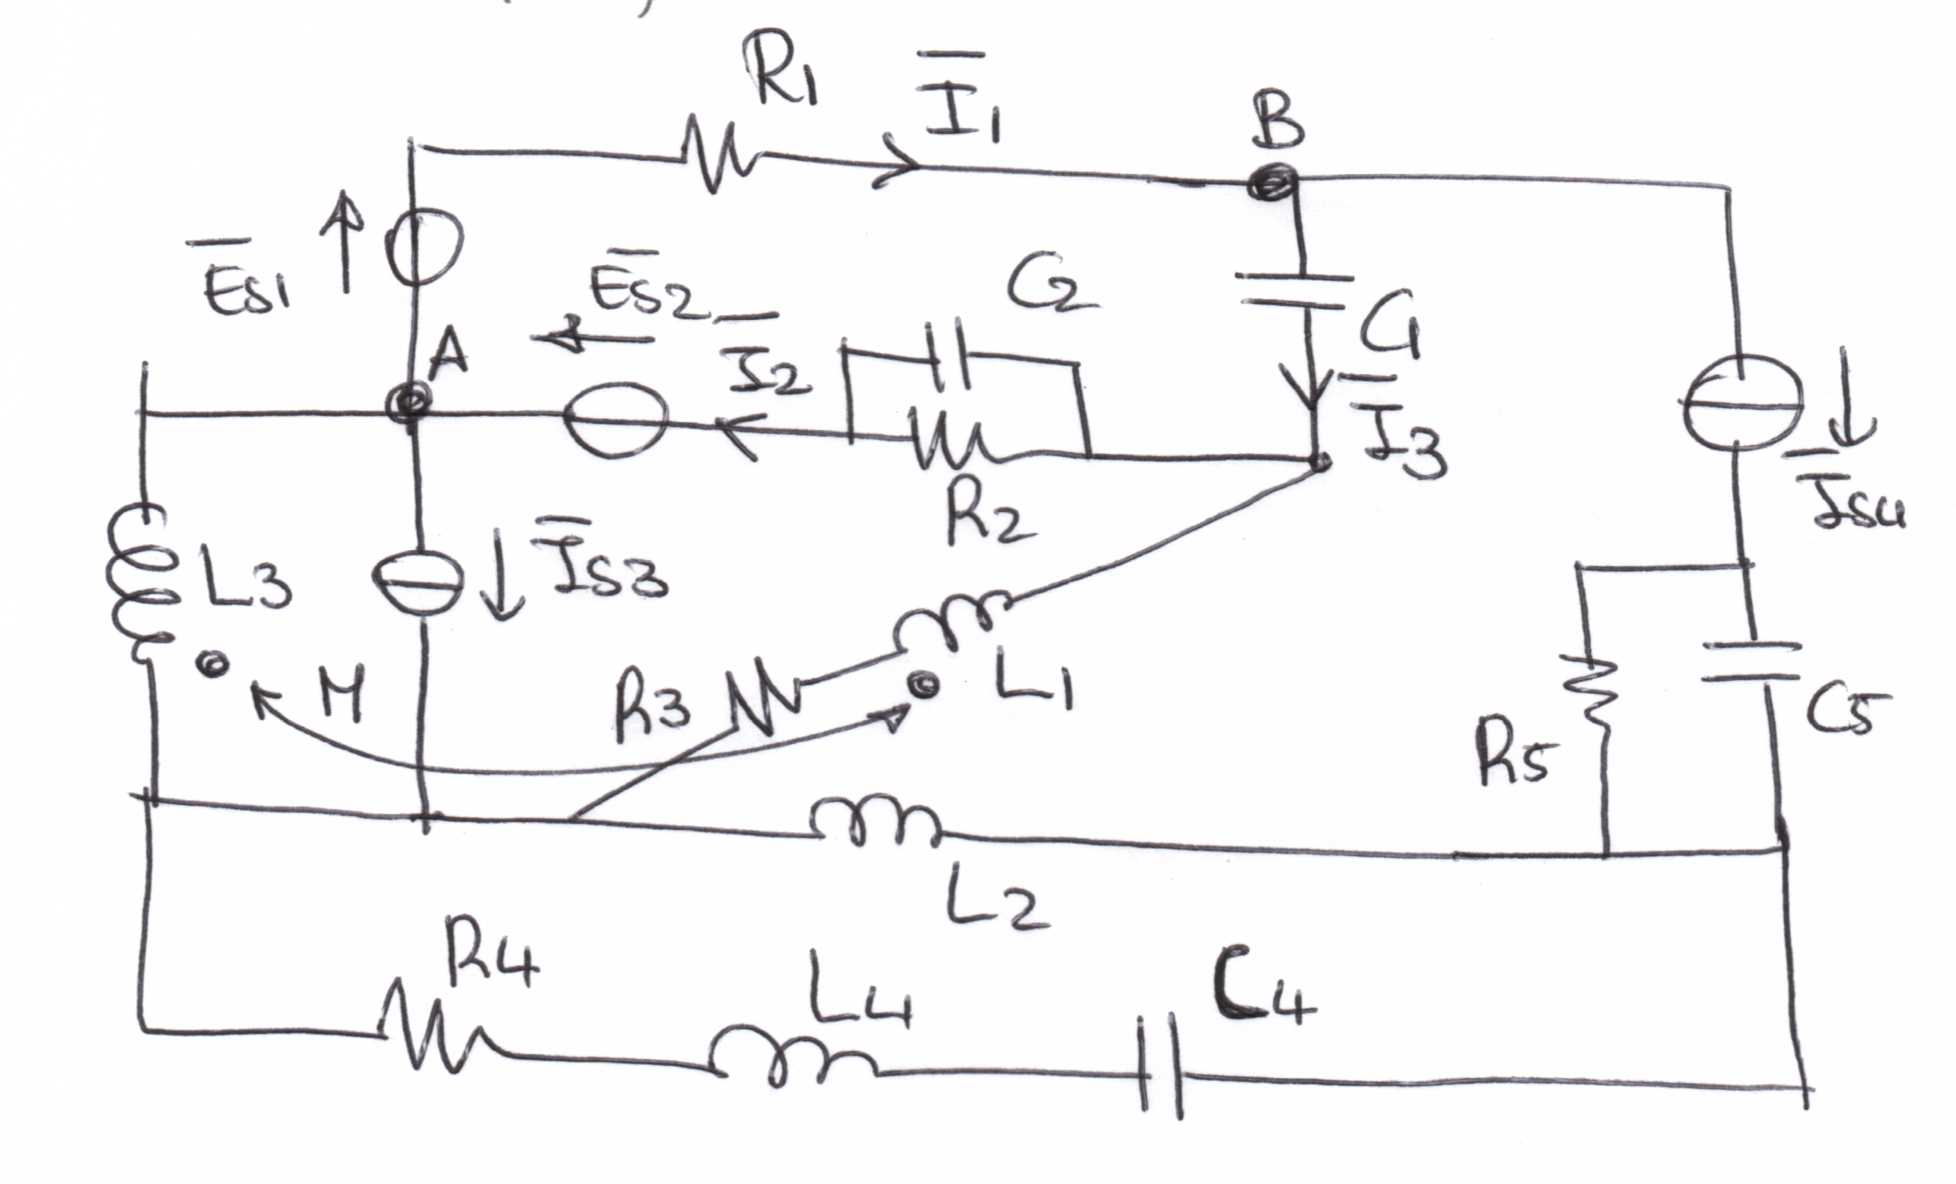 R1
I1
B
Es1
A
Es2
I2
C2
C1
I3
R2
Is4
L3
Is3
M
R3
L1
R5
C5
L2
R4
L4
C4